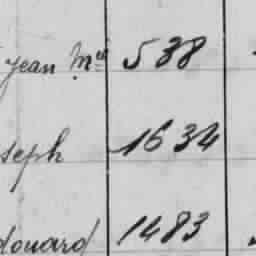 Jean Mce 538
seph 1634
douard 1483